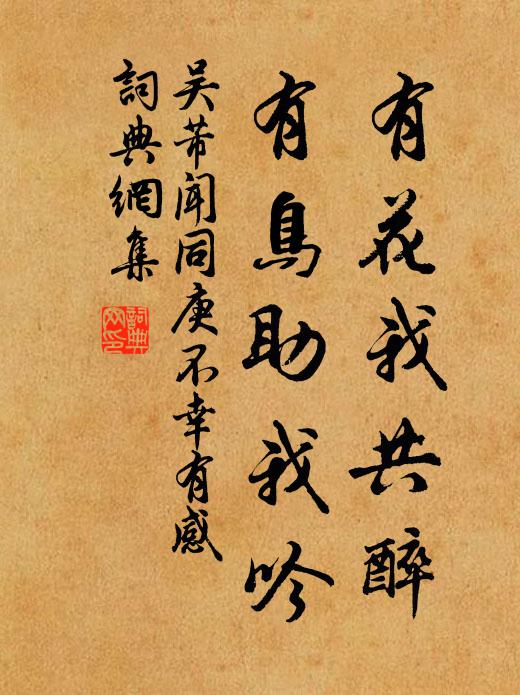 有花我共醉
有鳥助我吟
吴芾聞同庚不幸有感
詞典網集
詞典
网印